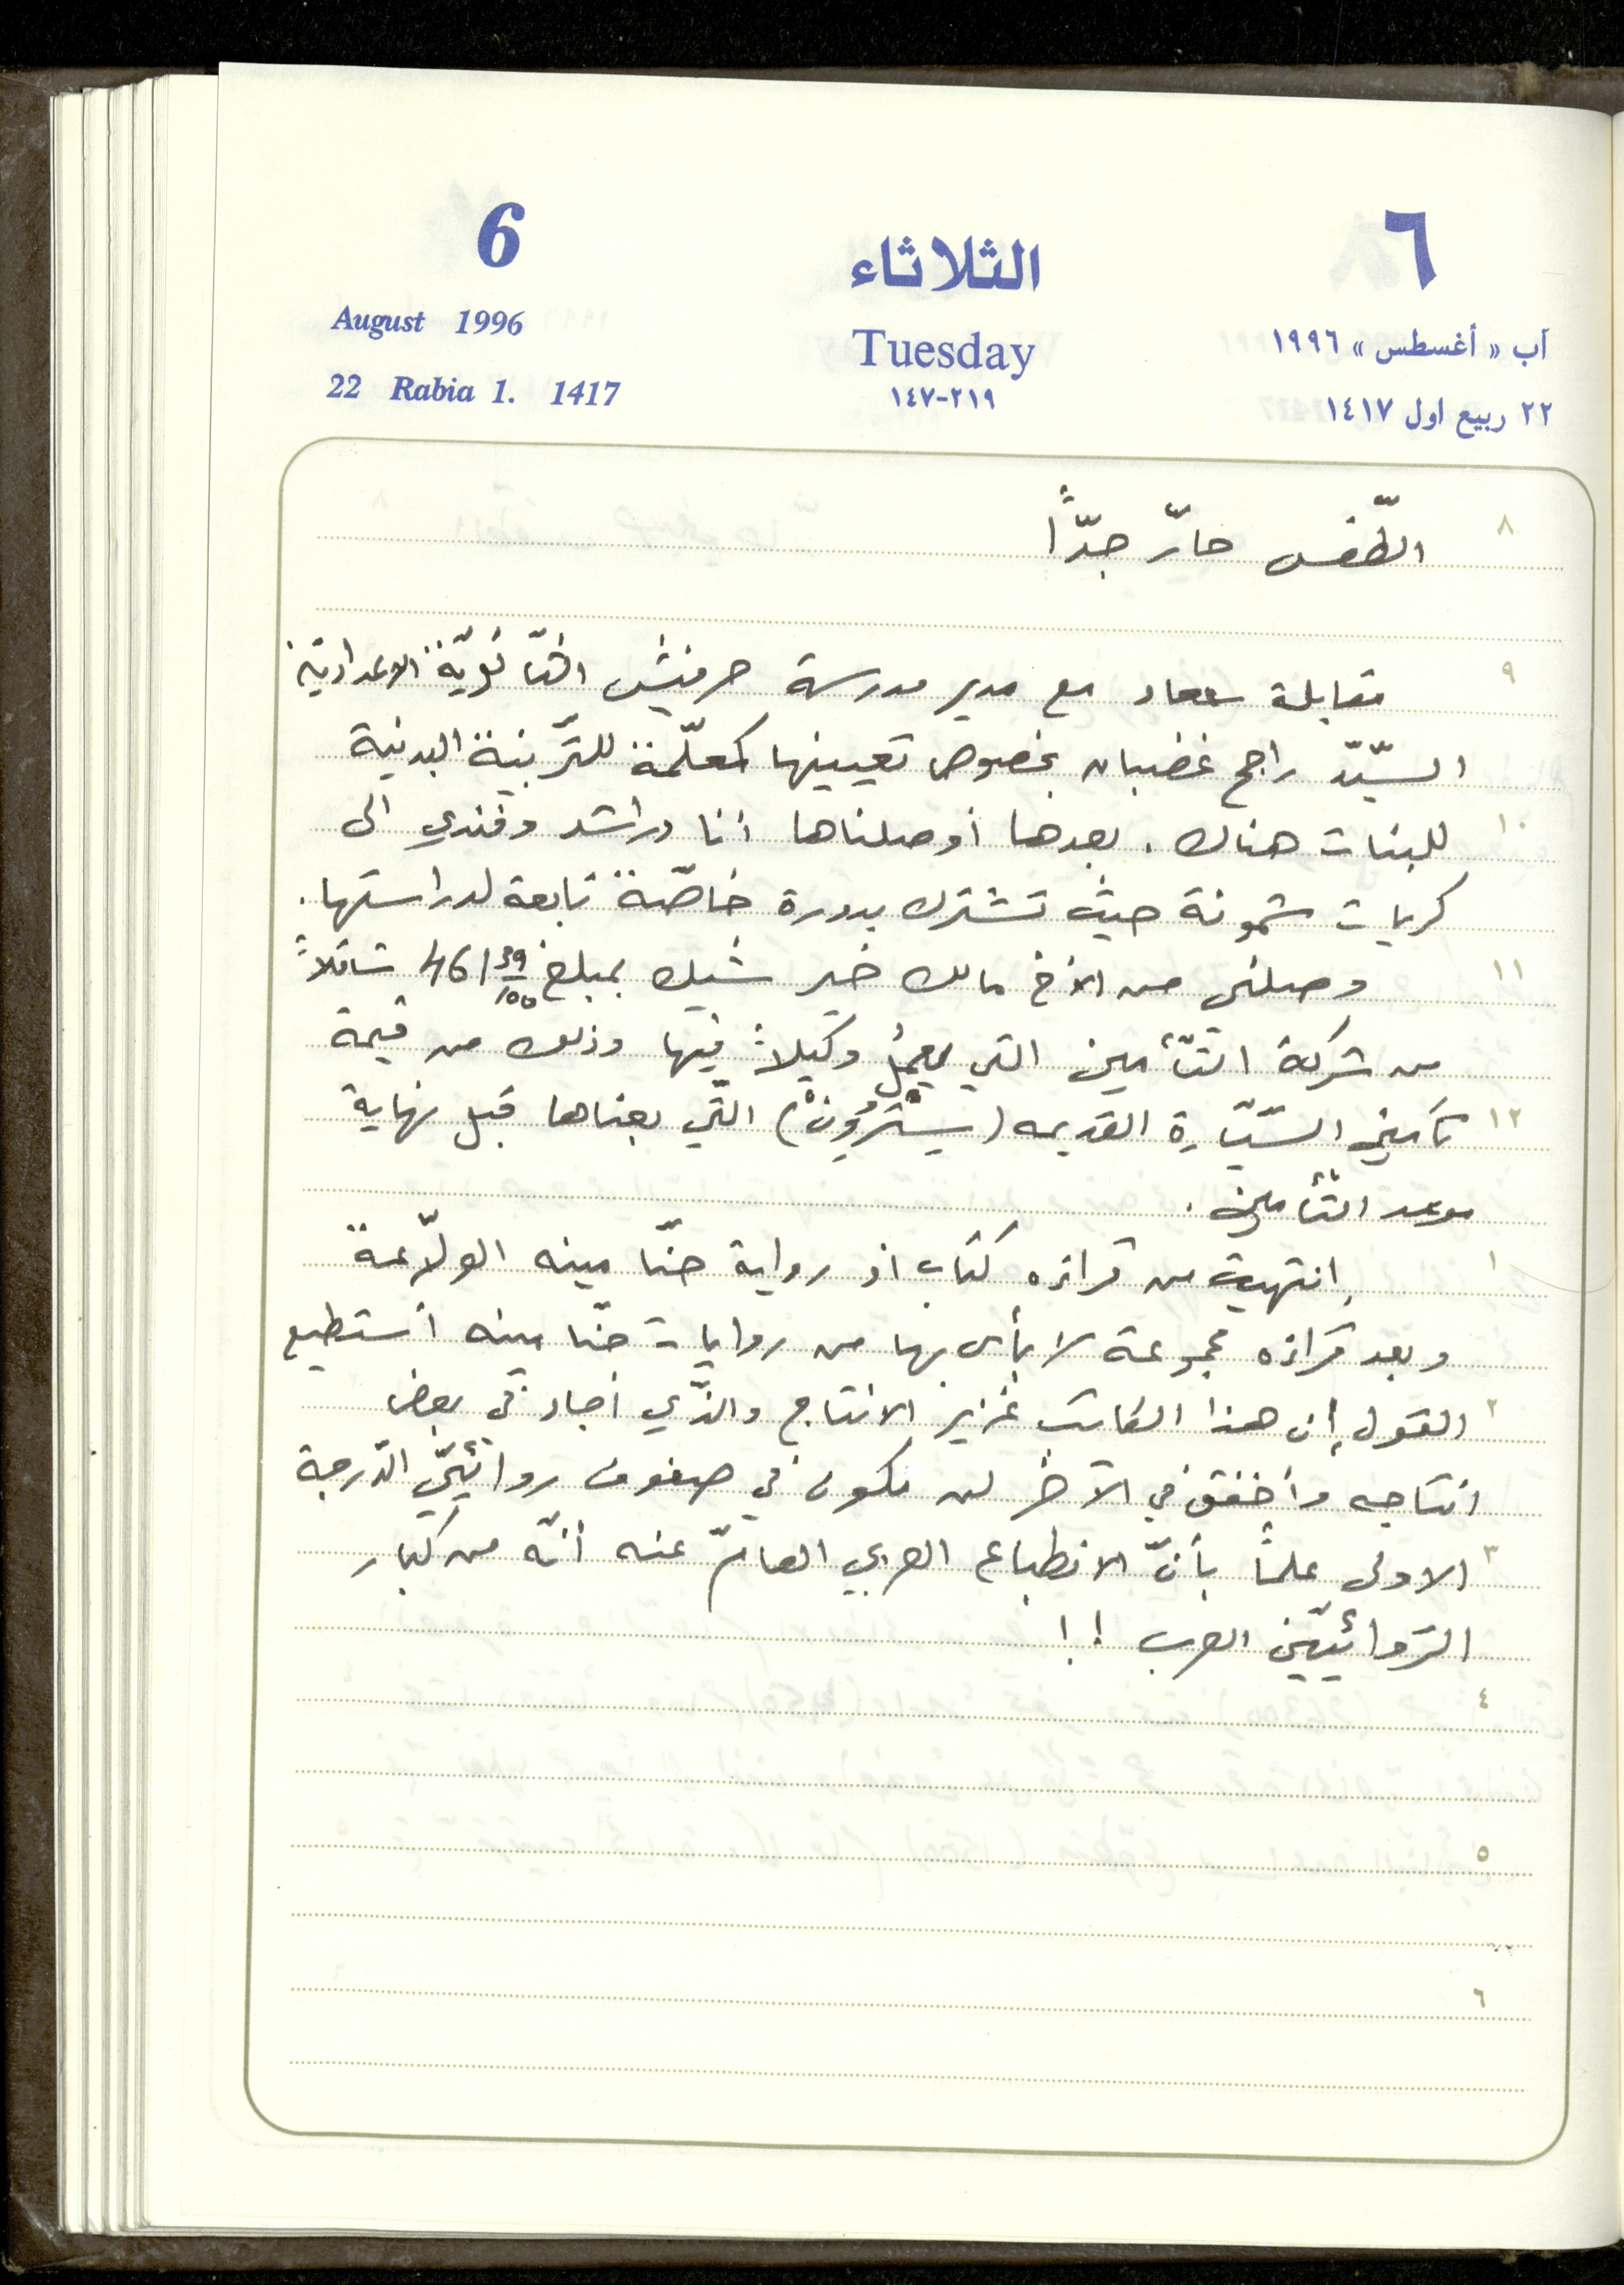 6
الثلاثاء
٦
August 1996
Tuesday
آب « أغسطس » ١٩٩٦
22 Rabia 1. 1417
١٤٧-٢١٩
٢٢ ربيع اول ١٤١٧
٨ الطّقس حارّ جدّاً
٩ مقابلة سعاد مع مدير مدرسة حرفيش الثّانويّة الاعداديّة
السّيّد راجح غضبان بخصوص تعيينها كمعلّمة للتّربية البدنية
١٠ للبنات هناك. بعدها أوصلناها أنا وراشد وفندي الى
كريات شمونة حيث تشترك بدورة خاصّة تابعة لدراستها.
١١ وصلني من الأخ مالك خير شيك بمبلغ 461 39/100 شاقلاً
من شركة التّأمين التي يعمل وكيلاً فيها وذلك من قيمة
١٢ تأمين السّيّارة القديمه (سيتروُنْ) التّي بعناها قبل نهاية
موعد التّأمين.
١ إنتهيت من قراءه كتاب او رواية حنّا مينه الولّاعة
وبعد قراءه مجموعة لا بأس بها من روايات حنّا مينه أستطيع
٢ القول إن هذا الكاتب غزير الانتاج والذّي أجاد في بعض
انتاجه وأخفق في الآخر لن يكون في صفوف روائيّي الدّرجة
٣ الاولى علماً بأنّ الانطباع العربي العامّ عنه أنّه من كبار
الرّوائيّين العرب !!
٤
٥
٦